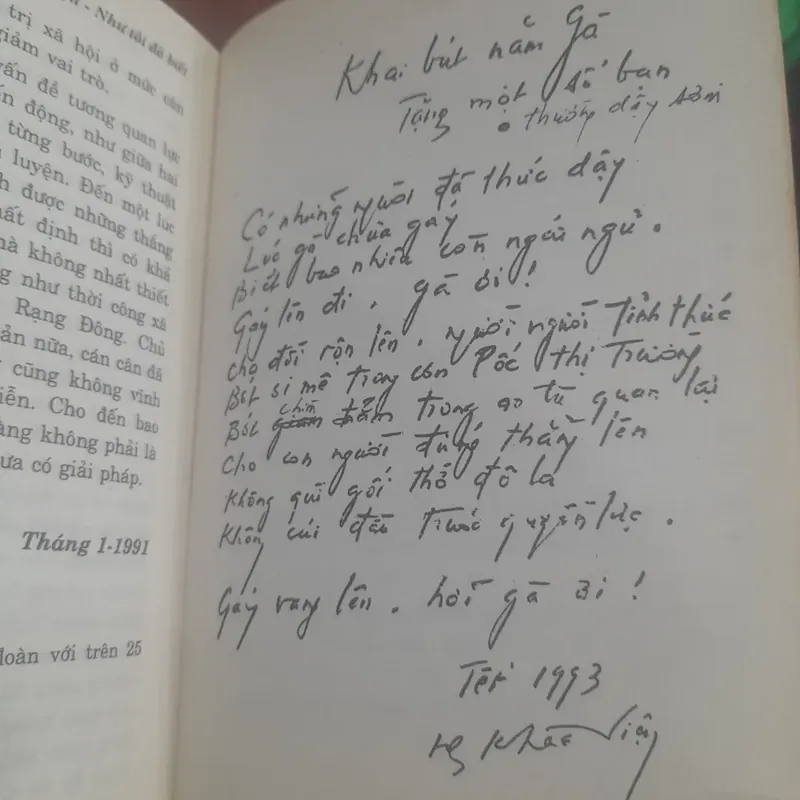 - Như tôi đã biết
trị xã hội ở mức căn
giảm vai trò.
vấn đề tương quan lực
ến động, như giữa hai
từng bước, kỹ thuật
luyện. Đến một lúc
h được những thắng
ất định thì có khả
hà không nhất thiết
g như thời công xã
Rạng Đông. Chủ
ản nữa, cán cân đã
cũng không vĩnh
iễn. Cho đến bao
àng không phải là
ưa có giải pháp.
Tháng 1-1991
đoàn với trên 25
Khai bút năm Gà
Tặng một số bạn
thường dậy sớm
Có những người đã thức dậy
Lúc gà chưa gáy
Biết bao nhiêu còn ngái ngủ.
Gáy lên đi, gà ơi!
Cho đời rộn lên, người người tỉnh thức
Bớt si mê trong cơn lốc thị trường
Bớt chìm đắm trong ao tù quan lại
Cho con người đứng thẳng lên
Không quì gối thờ đô la
Không cúi đầu trước quyền lực.
Gáy vang lên, hỡi gà ơi!
Tết 1993
Ng Khắc Viện